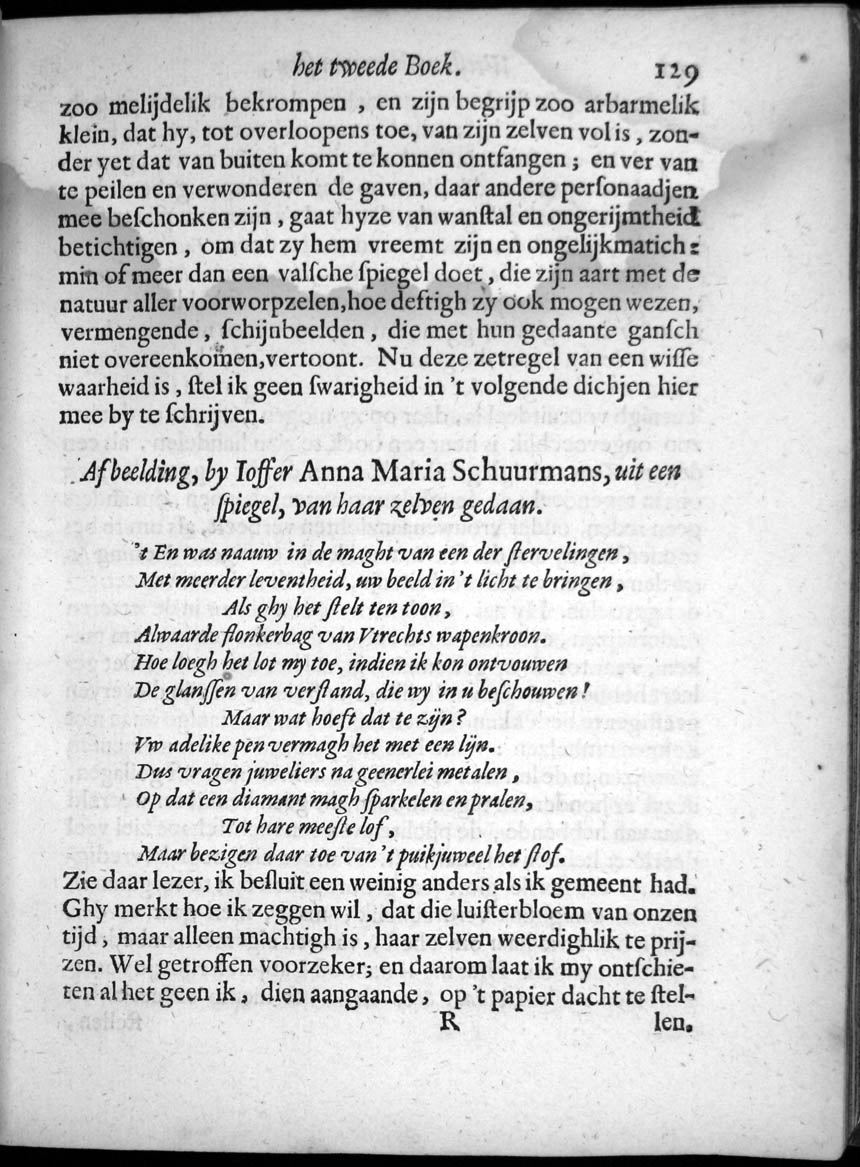 het tweede Boek. 129
zoo melijdelik bekrompen , en zijn begrijp zoo arbarmelik
klein, dat hy, tot overloopens toe, van zijn zelven vol is , zon-
der yet dat van buiten komt te konnen ontfangen ; en ver van
te peilen en verwonderen de gaven, daar andere perſonaadjen
mee beſchonken zijn , gaat hyze van wanſtal en ongerijmtheid
betichtigen , om dat zy hem vreemt zijn en ongelijkmatich :
min of meer dan een valſche ſpiegel doet , die zijn aart met de
natuur aller voorworpzelen,hoe deftigh zy ook mogen wezen,
vermengende , ſchijnbeelden , die met hun gedaante ganſch
niet overeenkomen,vertoont. Nu deze zetregel van een wiſſe
waarheid is , ſtel ik geen ſwarigheid in 't volgende dichjen hier
mee by te ſchrijven.
Afbeelding, by Ioffer Anna Maria Schuurmans, uit een
ſpiegel, van haar zelven gedaan.
't En was naauw in de maght van een der ſtervelingen ,
Met meerder leventheid, uw beeld in 't licht te bringen ,
Als ghy het ſtelt ten toon ,
Alwaarde flonkerbag van Vtrechts wapenkroon.
Hoe loegh het lot my toe, indien ik kon ontvouwen
De glanſſen van verſtand, die wy in u beſchouwen !
Maar wat hoeft dat te zijn ?
Vw adelike pen vermagh het met een lijn.
Dus vragen juweliers na geenerlei metalen ,
Op dat een diamant magh ſparkelen en pralen,
Tot hare meeſte lof ,
Maar bezigen daar toe van 't puikjuweel het ſtof.
Zie daar lezer, ik beſluit een weinig anders als ik gemeent had.
Ghy merkt hoe ik zeggen wil , dat die luiſterbloem van onzen
tijd , maar alleen machtigh is , haar zelven weerdighlik te prij-
zen. Wel getroffen voorzeker; en daarom laat ik my ontſchie-
ten al het geen ik , dien aangaande , op 't papier dacht te ſtel-
R len.